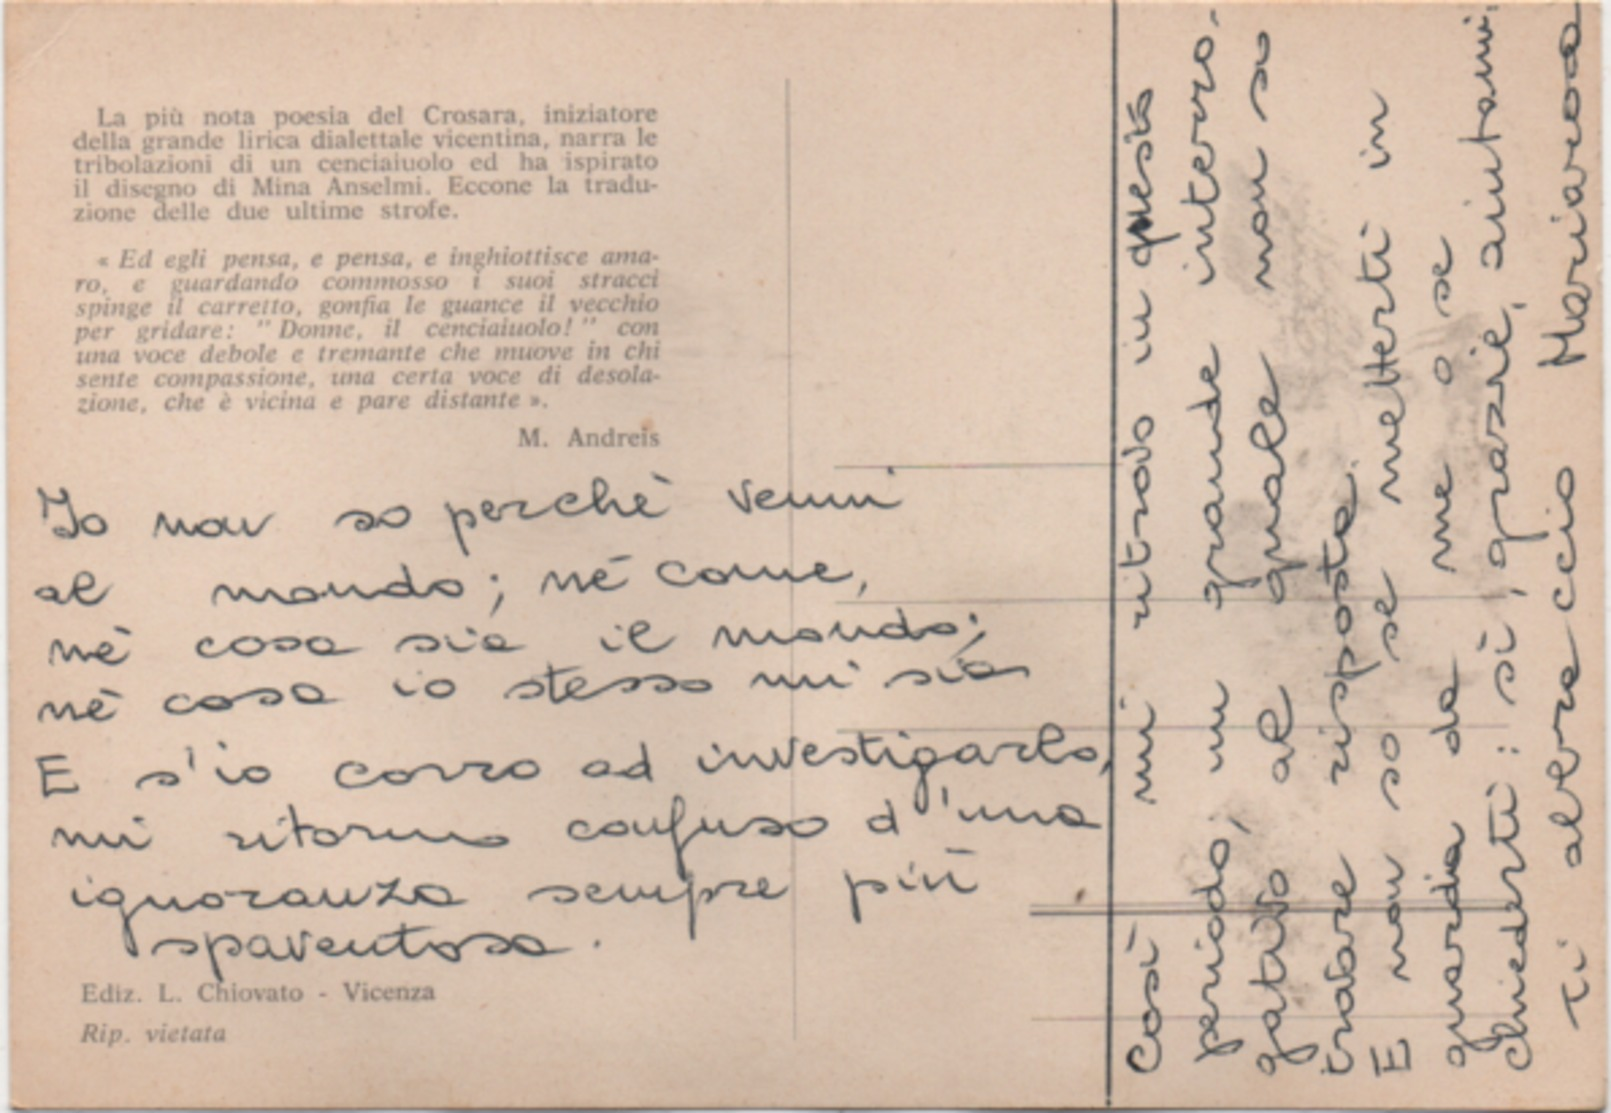 La più nota poesia del Crosara, iniziatore
della grande lirica dialettale vicentina, narra le
tribolazioni di un cenciaiuolo ed ha ispirato
il disegno di Mina Anselmi. Eccone la tradu-
zione delle due ultime strofe.
« Ed egli pensa, e pensa, e inghiottisce ama-
ro, e guardando commosso i suoi stracci
spinge il carretto, gonfia le guance il vecchio
per gridare: "Donne, il cenciaiuolo!" con
una voce debole e tremante che muove in chi
sente compassione, una certa voce di desola-
zione, che è vicina e pare distante ».
M. Andreis
Io non so perchè venni
al mondo; né come,
nè cosa sia il mondo;
nè cosa io stesso mi sia
E s'io corro ad investigarlo,
mi ritorno confuso d'una
ignoranza sempre più
spaventosa.
Ediz. L. Chiovato - Vicenza
Rip. vietata
Così mi ritrovo in questo
periodo, un grande interro-
gativo al quale non so
trovare risposta.
E non so se metterti in
guardia da me o se
chiederti: sì, grazie, aiutami.
Ti abbraccio Mariarosa